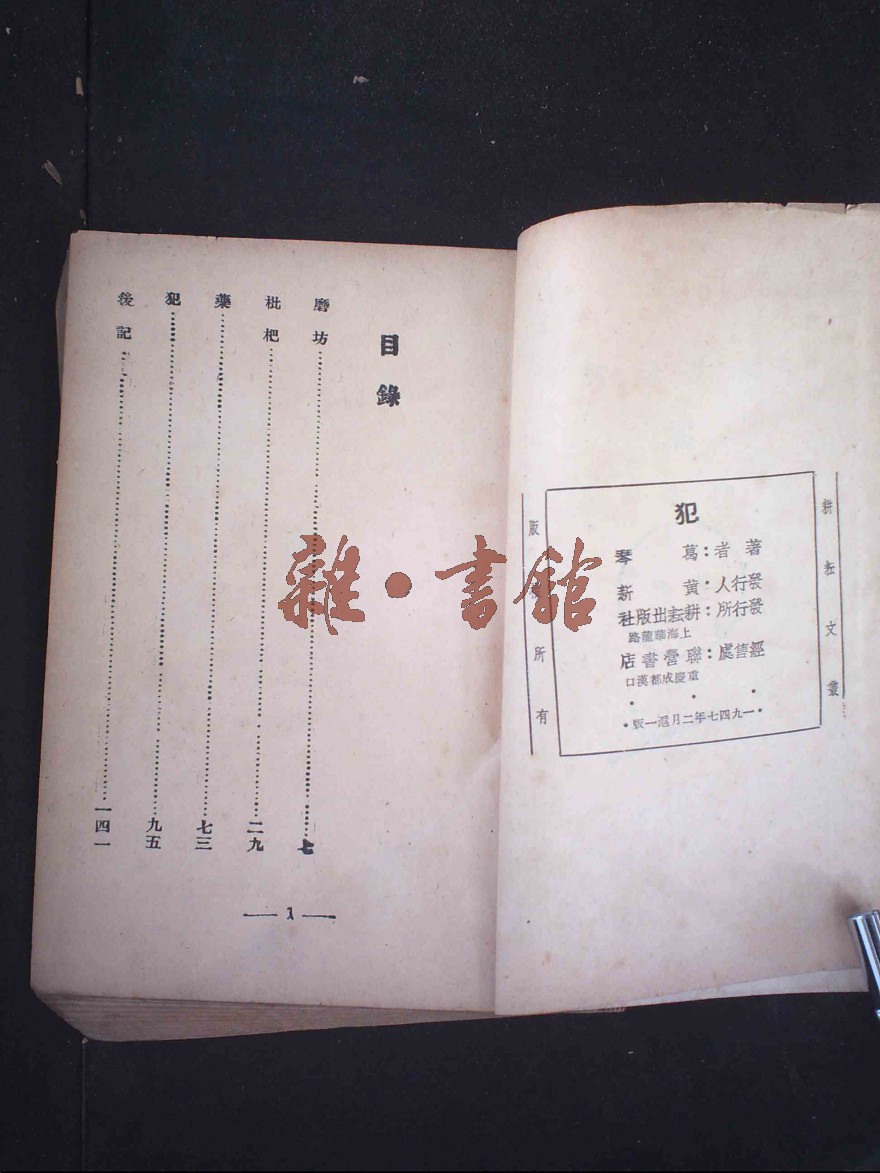 耕耘文叢
犯
著者：葛琴
發行人：黃新
發行所：耕耘出版社
上海華龍路
經售處：聯營書店
重慶成都漢口
·一九四七年二月滬一版·
版權所有
目錄
磨坊……七
枇杷……二九
藥……七三
犯……九五
後記……一四一
— 1 —
雜·書館